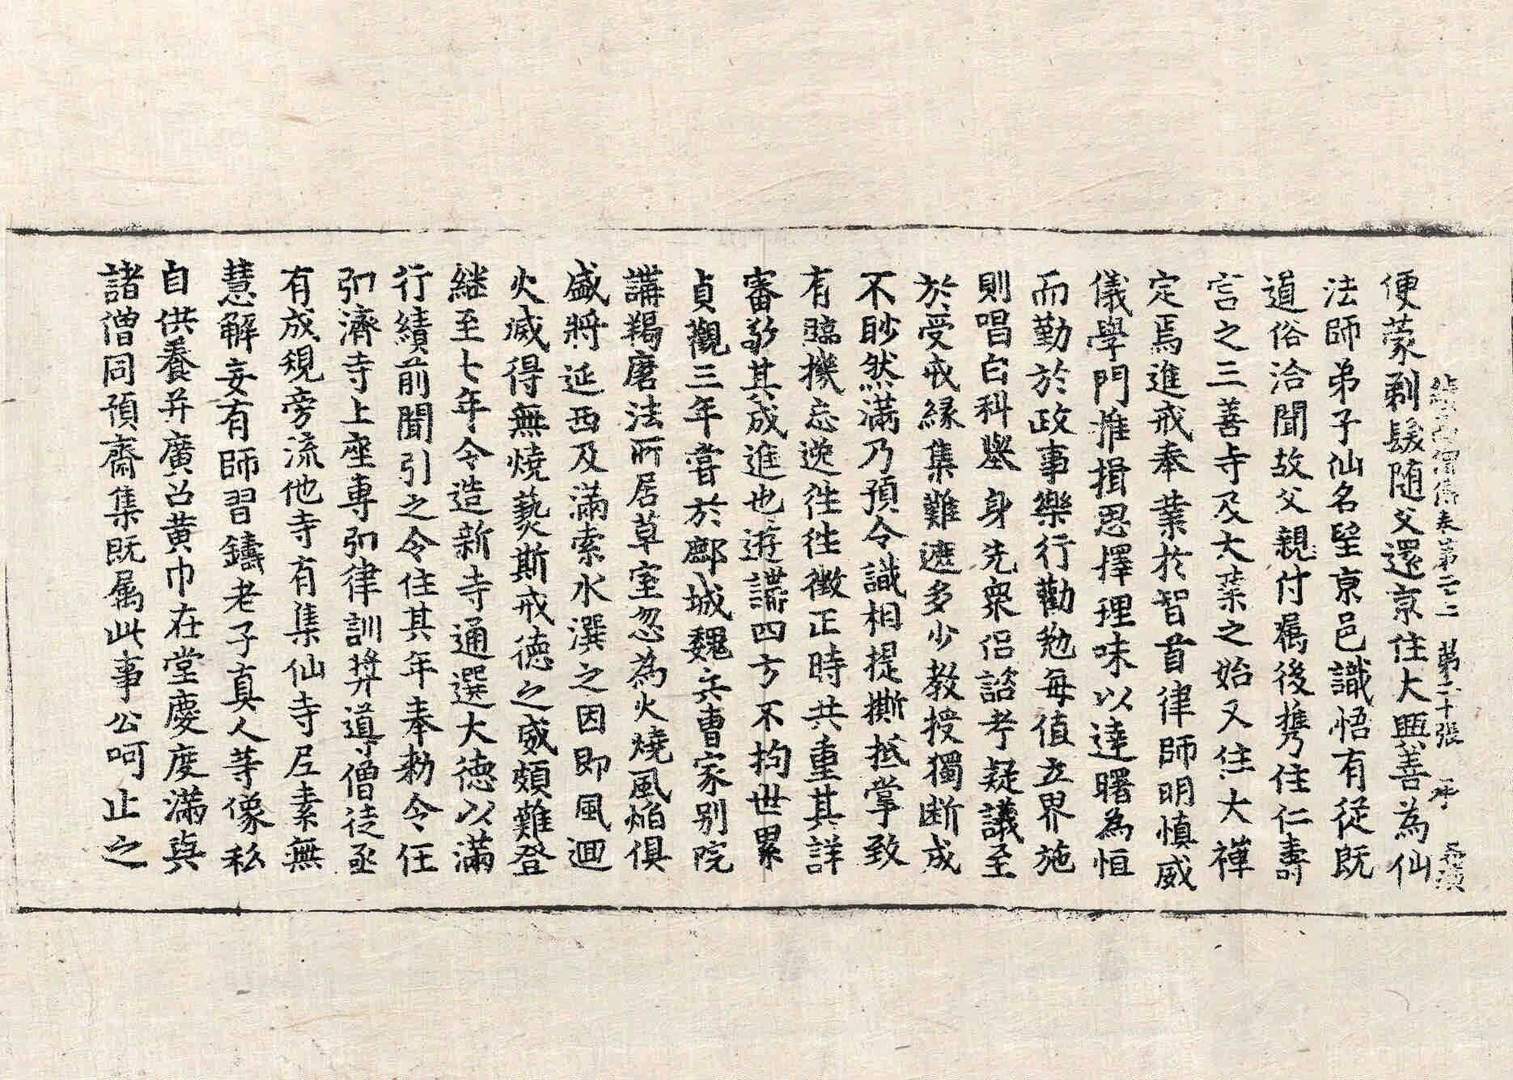 續高僧傳卷第二二 第二十張 𠃔
便蒙剃髮随父還京住大興善為仙
法師弟子仙名望京邑識悟有從既
道俗洽聞故父親付属後携住仁壽
宮之三善寺及大業之始又住大禅
定焉進戒奉業於智首律師明慎威
儀學門推揖思擇理味以達曙為恒
而勤於政事樂行勸勉每值立界施
則唱白科舉身先衆侣諮考疑議至
於受戒緣集難遮多少教授獨断成
不眇然滿乃預令識相提撕抵掌致
有臨機忘逸往往徵正時共重其詳
審敬其成進也遊講四方不拘世累
貞觀三年嘗於鄜城魏兵曹家别院
講羯磨法所居草室忽為火燒風焰俱
盛將延西及滿索水潠之因即風迴
火滅得無燒爇斯戒德之威頗難登
継至七年令造新寺通選大德以滿
行績前聞引之令住其年奉勑令任
弘濟寺上座專弘律訓獎導僧徒丞
有成規旁流他寺有集仙寺尼素無
慧解妄有師習鑄老子真人等像私
自供養并廣召黄巾在堂慶度滿與
諸僧同預齋集既属此事公呵止之